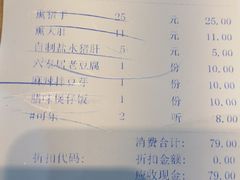 熏猪手 25 元 25.00
熏大肚 11 元 11.00
自制盐水猪肝 5 元 5.00
六奈居老豆腐 1 份 10.00
麻辣拌豆芽 1 份 10.00
腊味煲仔饭 1 份 10.00
#可乐 2 听 8.00
消费合计: 79.00
折扣代码: 折扣金额: 0.00
应收现金: 79.00